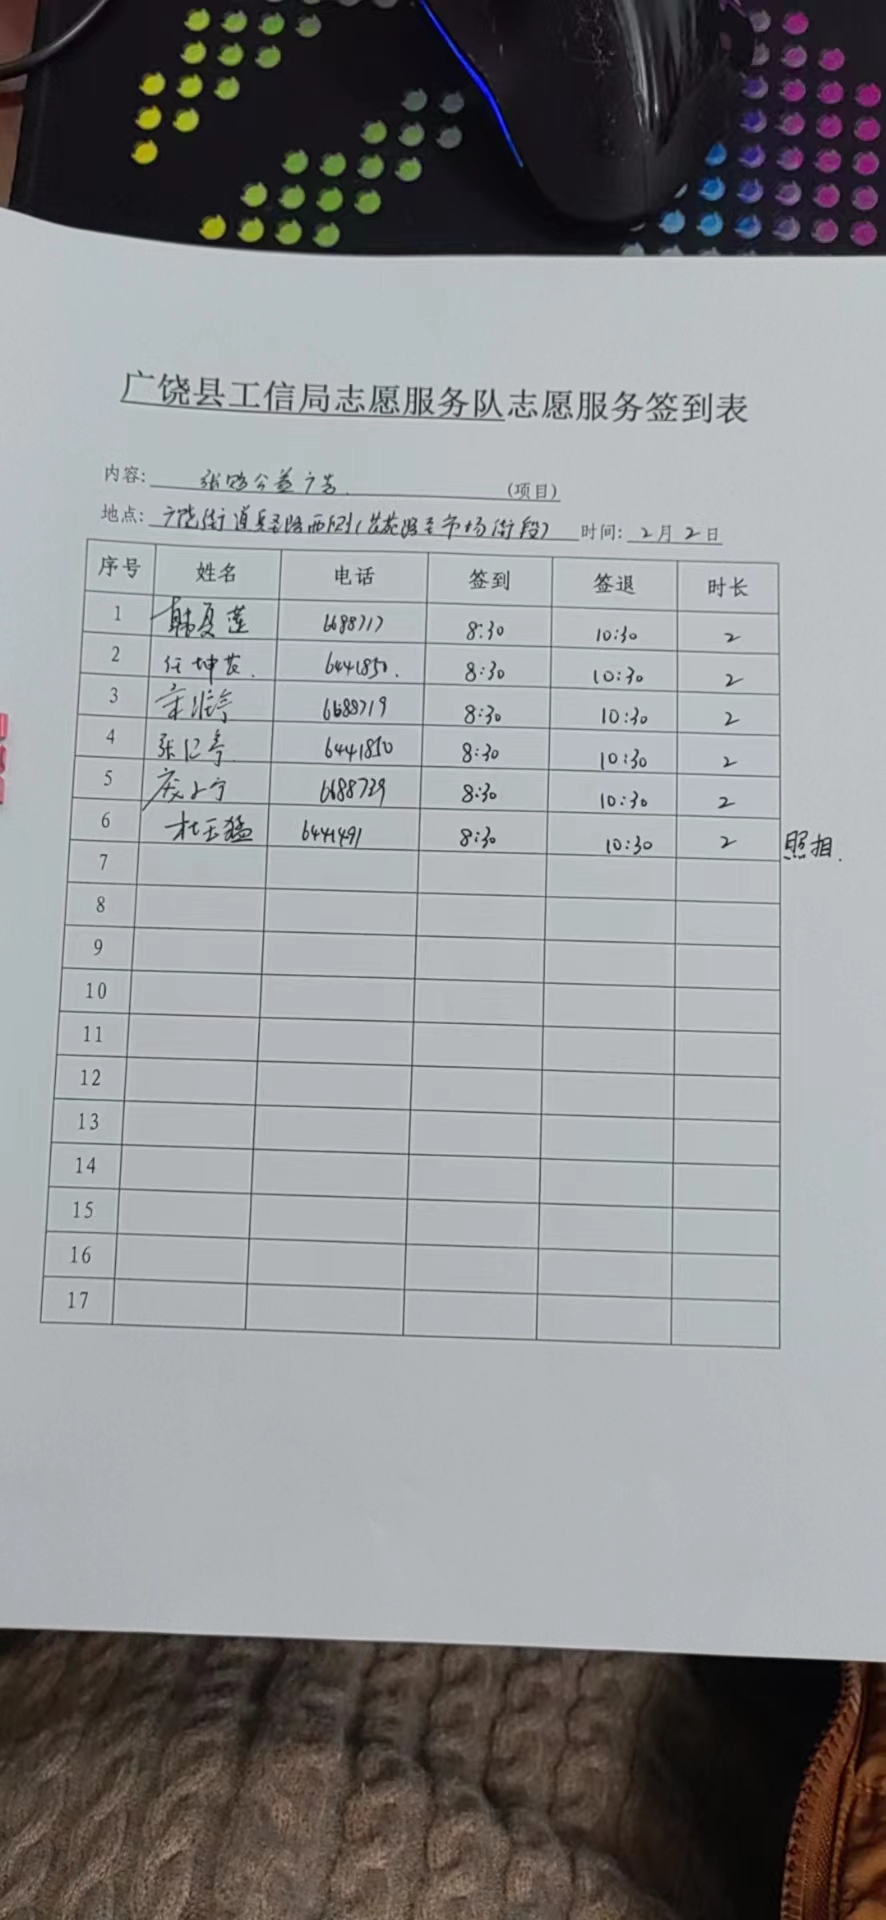 广饶县工信局志愿服务队志愿服务签到表
内容: 张贴公益广告 (项目)
地点: 广饶街道 路西侧( 市场街段) 时间: 2月2日
序号 姓名 电话 签到 签退 时长
1 韩夏莲 6688717 8:30 10:30 2
2 任坤 6441850. 8:30 10:30 2
3 6688719 8:30 10:30 2
4 张 6441850 8:30 10:30 2
5 6688729 8:30 10:30 2
6 杜玉猛 6441491 8:30 10:30 2 照相.
7
8
9
10
11
12
13
14
15
16
17